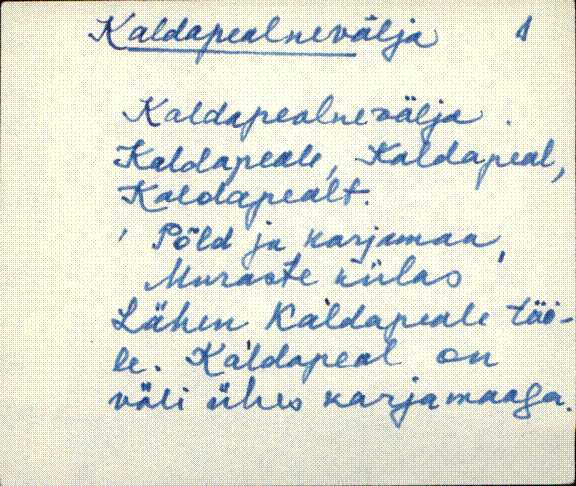 Kaldapealnevälja 1
Kaldapealnevälja.
Kaldapeale, Kaldapeal,
Kaldapealt.
' Põld ja karjamaa,
Muraste külas
Lähen Kaldapeale töö-
le. Kaldapeal on
väli ühes karjamaaga.